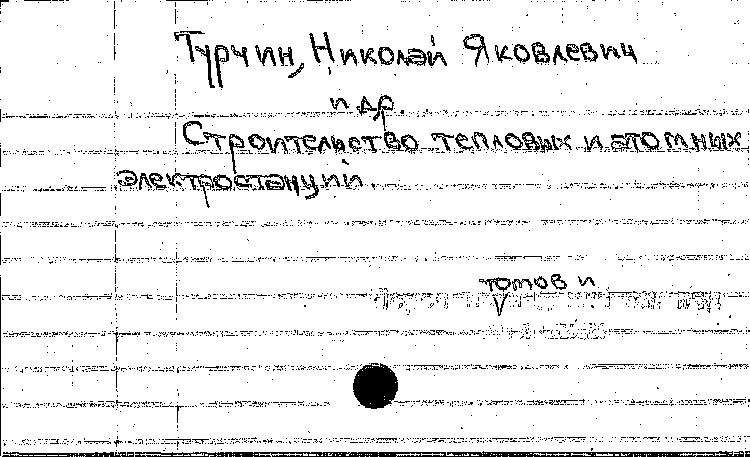 Турчин, Николай Яковлевич
и др.
Строительство тепловых и атомных
электростанций.
томов и